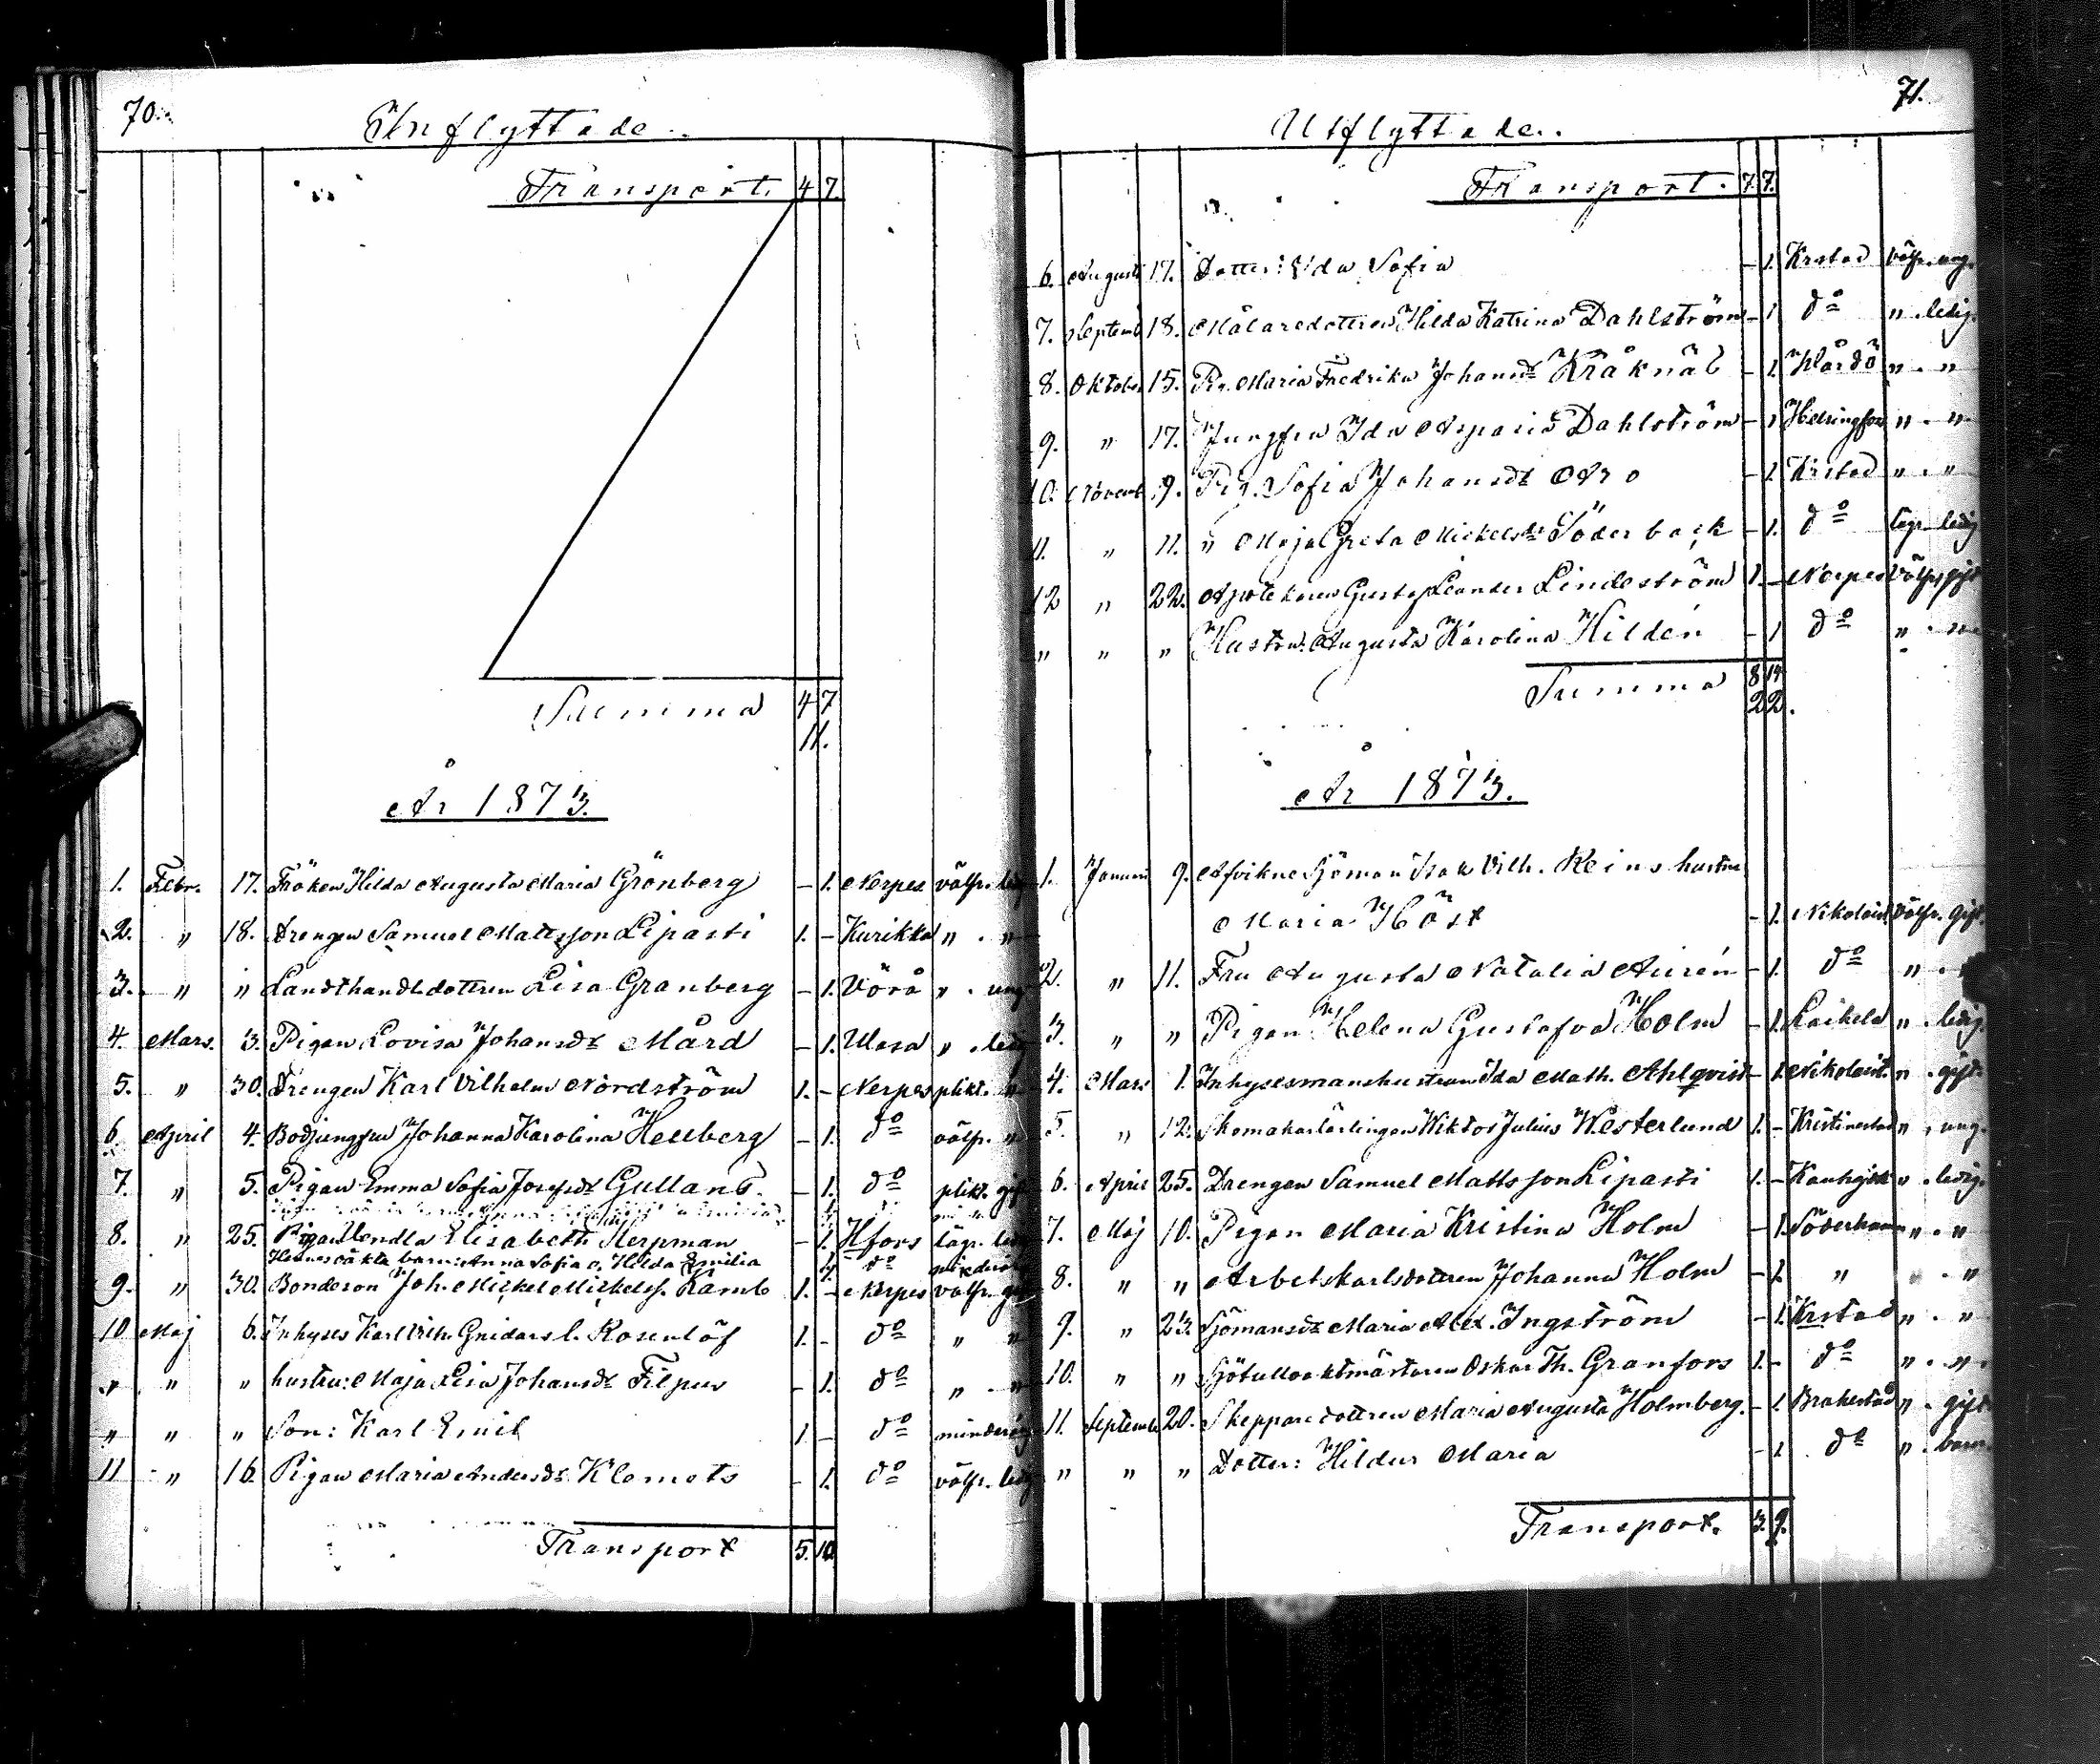 70.
Inflyttade.
Transport. 4 7.
Summa 4 7
11.
År 1873.
1. Febr. 17. Fröken Hilda Augusta Maria Grönberg – 1. Nerpes välfr. ledig
2. " 18. Drengen Samuel Mattsson Lipasti 1. – Kurikka " . "
3. " " Landthandl.dottren Lisa Granberg – 1. Vörå " . ung
4. Mars. 3. Pigan Lovisa Johansdr Mård – 1. Wasa " . ledig
5. " 30. Drengen Karl Vilhelm Nordström 1. – Nerpes plikt. "
6. April 4. Bodjungfrun Johanna Karolina Hellberg – 1. do välfr. "
7. " 5. Pigan Emma Sofia Josefsdr Gullans. – 1. do plikt. gift
8. " 25. Pigan Vendla Elisabeth Skerpman – 1. Hfors lägr. ledig
Hennes oäkta barn: Anna Sofia o. Hilda Emilia do
9. " 30. Bonderson Joh. Mickel Mickelss. Ramb 1. – Nerpes välfr.
10 Maj 6. Inhyses Karl Vilh. Gnidarsl. Rosenlöf 1. – do " "
" " " hustru: Maja Lisa Johansdr Filpus – 1. do " . "
" " " Son: Karl Emil 1. – do minderårig
11 " 16. Pigan Maria Andersdr Klomets – 1. do välfr. ledig
Transport 5. 10
71.
Utflyttade.
Transport. 7. 7.
6. Augusti 17. Dotter: Ida Sofia – 1. Krstad välfr. ung.
7. Septemb 18. Målaredottren Hilda Katrina Dahlström – 1 do " . ledig.
8. Oktober 15. Pig. Maria Fredrika Johansdr Kråknäb – 1. " . "
9. " 17. Jungfru Ida Asparis Dahlström – 1 Helsingfors " . "
10. Novemb. 9. Pig. Sofia Johansdr Åro – 1. Krstad " . "
11. " 11. " Maja Greta Mickelsdr Söderback – 1. do lägr. ledig
12 " 22. Apotekaren Gustaf Leander Lindeström 1. – Nerpes välfr. gift
" " " Hustru: Augusta Karolina Hildén – 1 do " . "
Summa 8 14
22.
År 1873.
1. Januari 9. Afvikne Sjöman Isak Vilh. Reins hustru
Maria Höst – 1. Nikolaist. välfr. gift.
2. " 11. Fru Augusta Natalia Aurén – 1. do " . "
3. " " Pigan Helena Gustafva Holm – 1. Laihela " . ledig.
4. Mars 1. Inhysesmanshustrun Ida Math. Ahlqvist – 1. Nikolaist. " . gift.
5. " 12. Skomakarlärlingen Wiktor Julius Westerlund 1. – Kristinestad " . ung.
6. April 25. Drengen Samuel Mattsson Lipasti 1. – Kauhajoki " . ledig.
7. Maj 10. Pigan Maria Kristina Holm – 1. Söderhamn " . "
8. " " Arbetskarlsdottren Johanna Holm – 1. " " . "
9. " 23. Sjömansdr Maria Alex. Ingström – 1. Krstad " . "
10. " " Sjötullvaktmästaren Oskar Th. Granfors 1. – do " . "
11. Septemb 20. Skepparedottren Maria Augusta Holmberg. – 1. Brahestad " . gift
" " " Dotter: Hildur Maria – 1 do " . barn.
Transport. 3. 9.